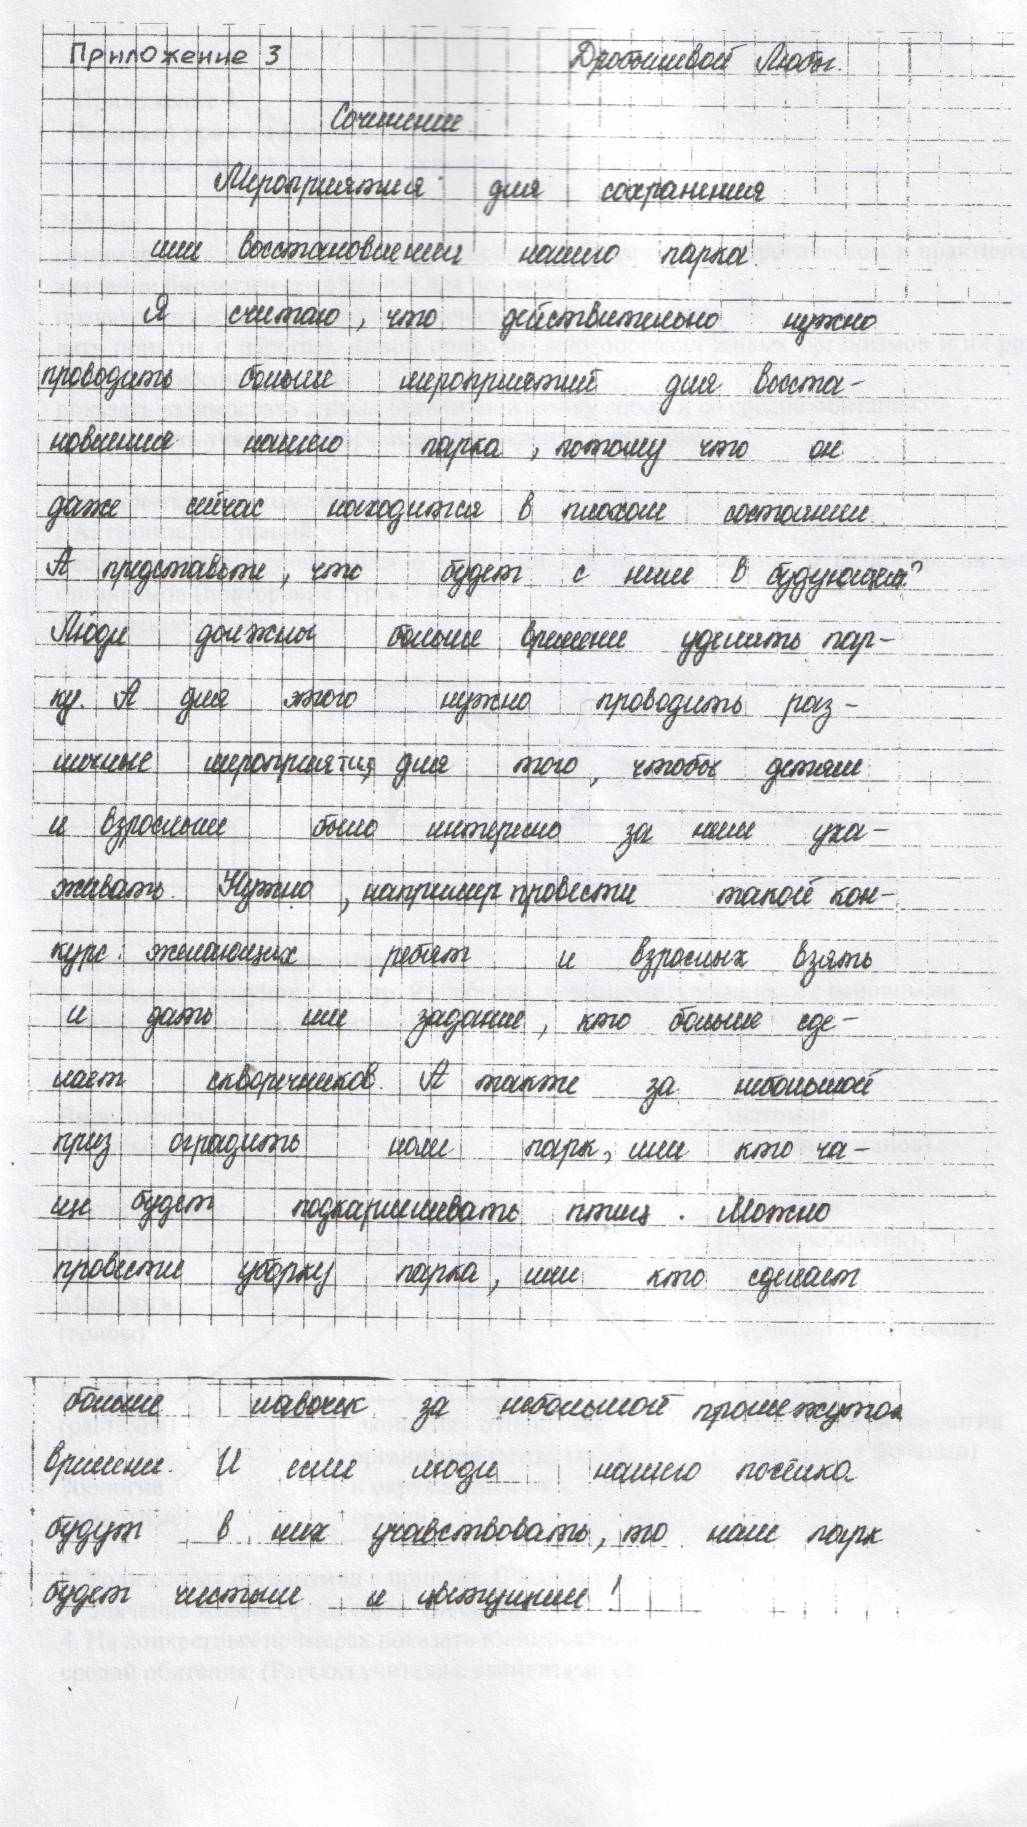 Приложение 3 Дробышевой Любы.
Сочинение
Мероприятия для сохранения
или восстановлении нашего парка.
Я считаю, что действительно нужно
проводить больше мероприятий для восста-
новления нашего парка, потому что он
даже сейчас находится в плохом состоянии.
А представьте, что будет с ним в будующем?
Люди должны больше времени уделить пар-
ку. А для этого нужно проводить раз-
личные мероприятия, для того, чтобы детям
и взрослым было интересно за ним уха-
живать. Нужно, например провести такой кон-
курс: желающих ребят и взрослых взять
и дать им задание, кто больше сде-
лает скворечников. А также за небольшой
приз оградить наш парк, или кто ча-
ще будет подкармливать птиц. Можно
провести уборку парка, или кто сделает
больше лавочек за небольшой промежуток
времени. И если люди нашего посёлка
будут в них учавствовать, то наш парк
будет чистым и цветущим!